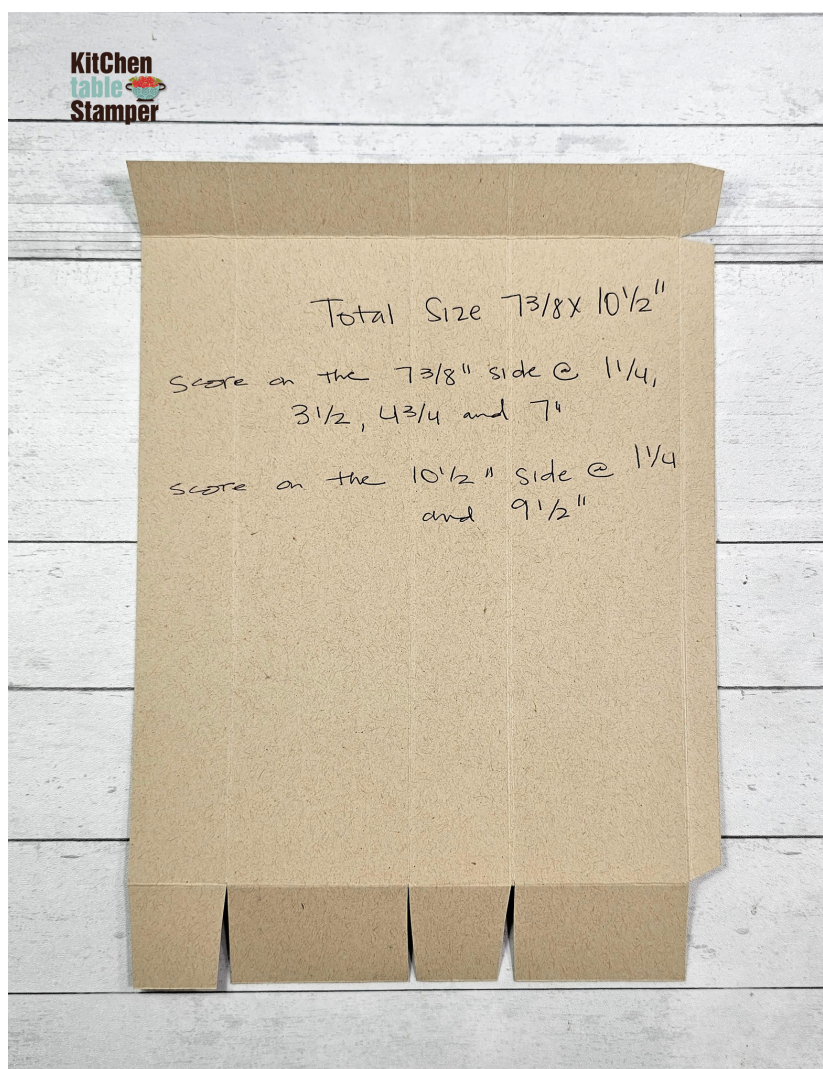 KitChen
table
Stamper
Total Size 7 3/8 x 10 1/2"
Score on the 7 3/8" side @ 1 1/4,
3 1/2, 4 3/4 and 7"
Score on the 10 1/2" side @ 1 1/4
and 9 1/2"